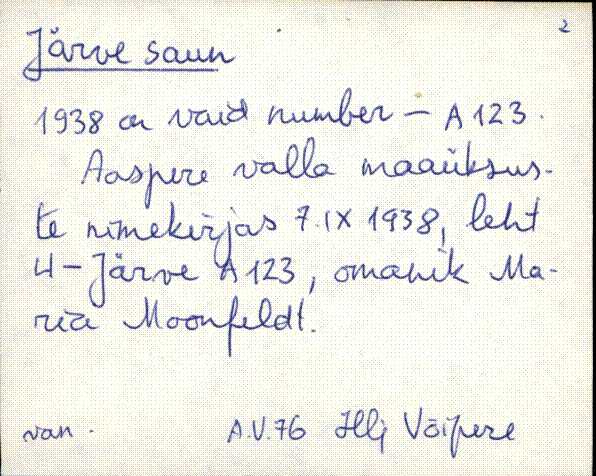 2
Järve saun
1938 on vaid number – A 123.
Aaspere valla maaüksus-
te nimekirjas 7.IX 1938, leht
4 – Järve A 123, omanik Ma-
ria Moonfeldt.
van. A.V.76 Illi Võipere